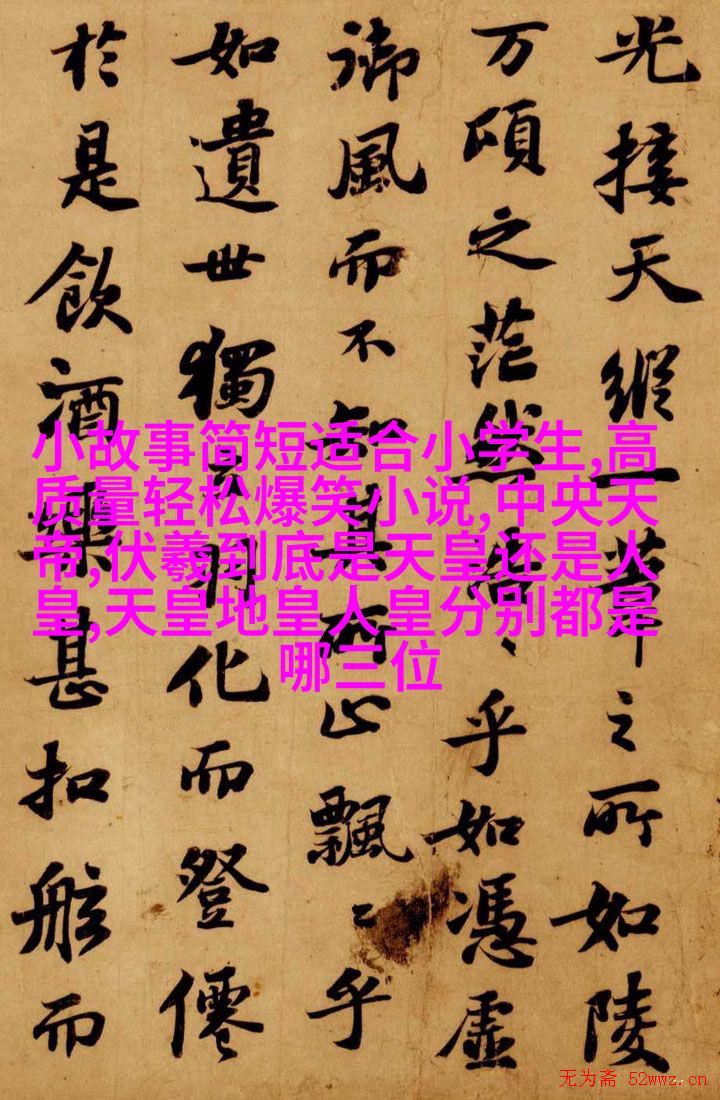 光接天縱一葦之所如陵
万頃之茫然浩〻乎如憑虛
御風而不知其所止飄〻乎
如遺世獨立羽化而登僊
於是飲酒樂甚扣舷而
小故事简短适合小学生,高
质量轻松爆笑小说,中央天
帝,伏羲到底是天皇还是人
皇,天皇地皇人皇分别都是
哪三位
无为斋 52wwz.cn